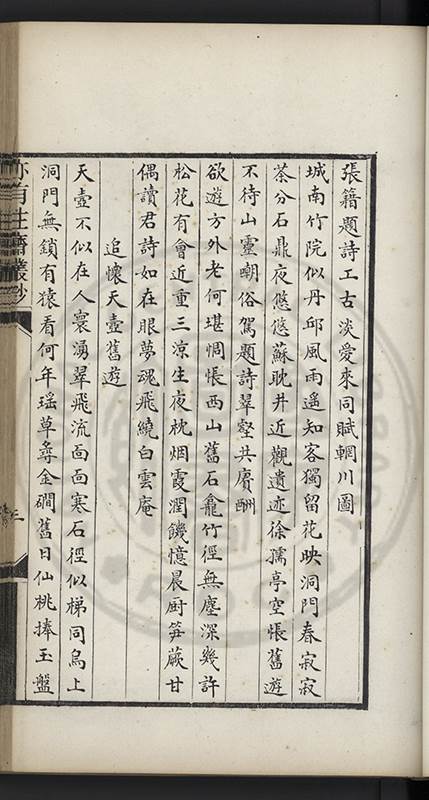 張籍題詩工古淡愛來同賦輞川圖
城南竹院似丹邱風雨遙知客獨留花映洞門春寂寂
茶分石鼎夜悠悠蘇耽井近觀遺迹徐孺亭空悵舊遊
不待山靈嘲俗駕題詩翠壑共賡酬
欲遊方外老何堪惆悵西山舊石龕竹徑無塵深幾許
松花有會近重三涼生夜枕烟霞潤饑憶晨厨笋蕨甘
偶讀君詩如在眼夢魂飛繞白雲庵
追懷天壺舊遊
天壺不似在人寰湧翠飛流面面寒石徑似梯同鳥上
洞門無鎖有猿看何年瑤草尋金磵舊日仙桃捧玉盤
亦有生齋叢鈔
三